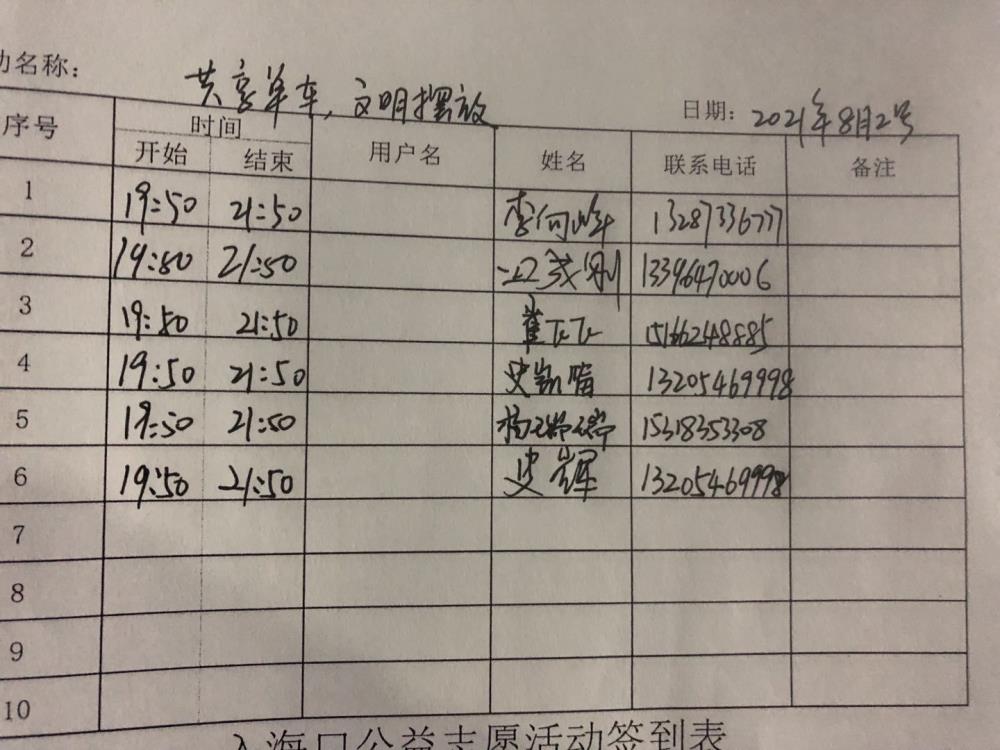 动名称： 共享单车，文明摆放 日期： 2021年8月2号
序号 时间 用户名 姓名 联系电话 备注
开始 结束
1 19:50 21:50 李向峰 13287336777
2 19:50 21:50 13396470006
3 19:50 21:50 崔飞飞 15166248885
4 19:50 21:50 史凯 13205469998
5 19:50 21:50 杨瑞瑞 15318353308
6 19:50 21:50 史辉 13205469998
7
8
9
10
入海口公益志愿活动签到表